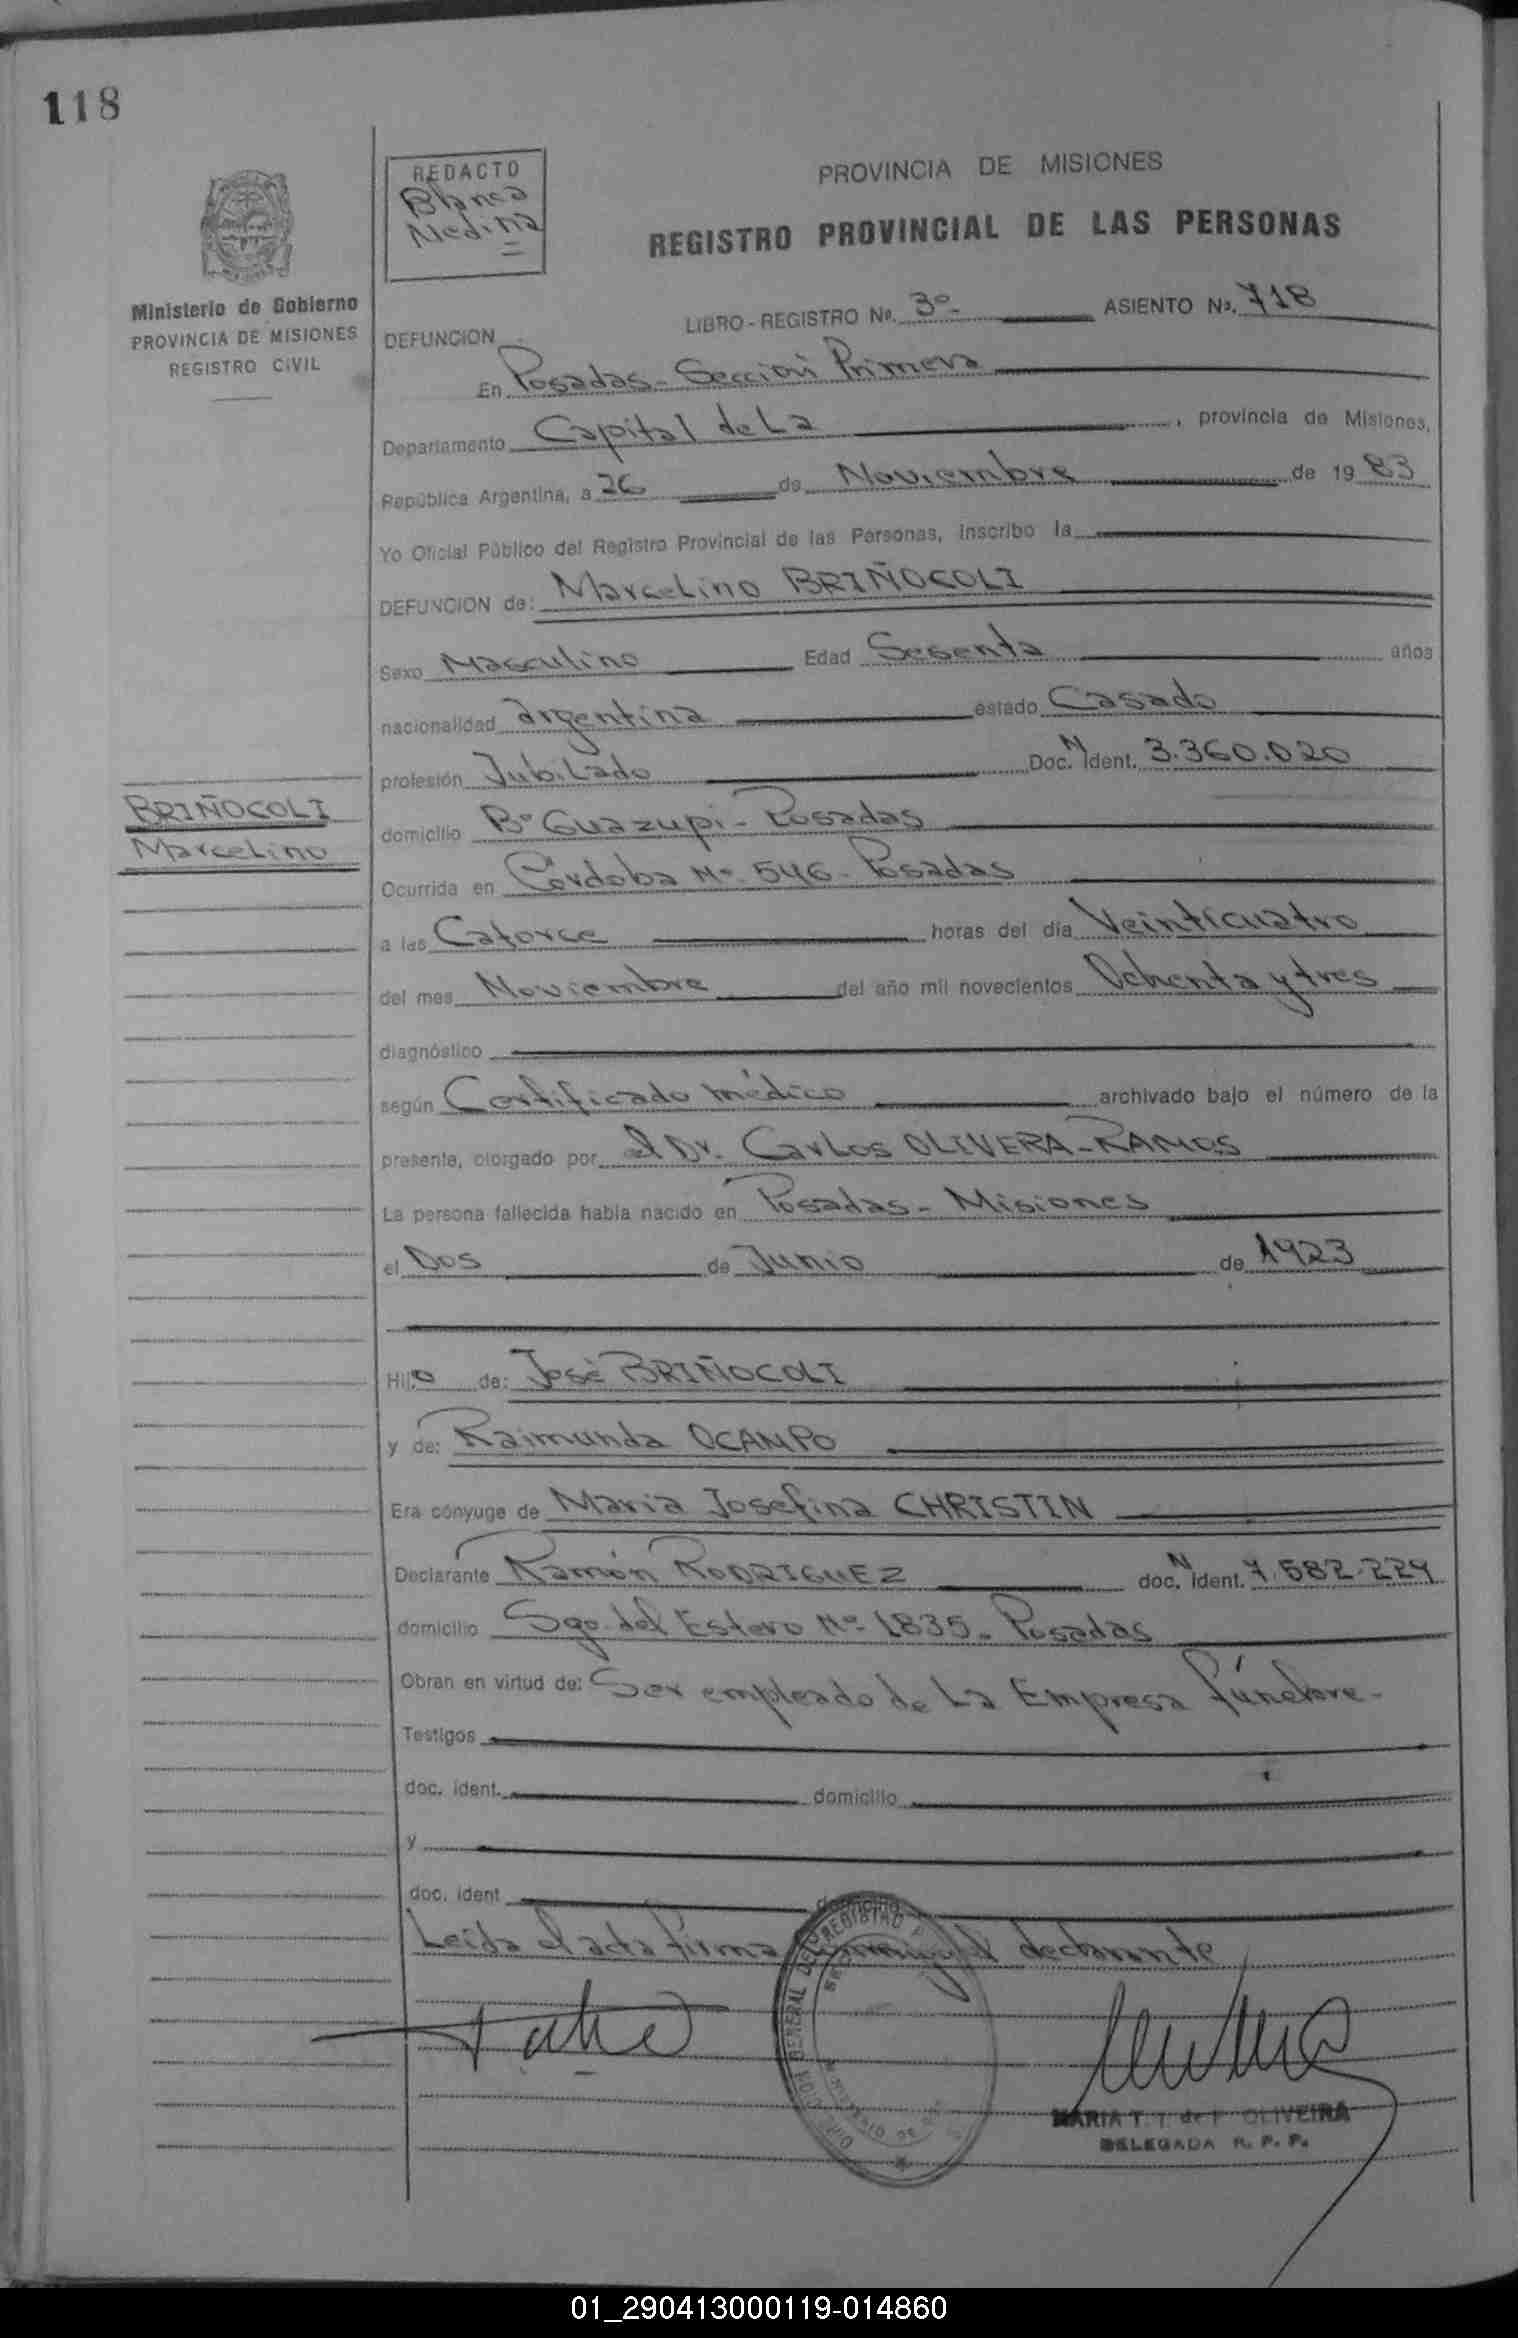 118
REDACTO
Blanca
Medina
PROVINCIA DE MISIONES
REGISTRO PROVINCIAL DE LAS PERSONAS
Ministerio de Gobierno
PROVINCIA DE MISIONES
REGISTRO CIVIL
LIBRO - REGISTRO Nº. 3º- ASIENTO Nº. 718
DEFUNCION
En Posadas - Sección Primera
Departamento Capital de La , provincia de Misiones,
República Argentina, a 26 de Noviembre de 19 83
Yo Oficial Público del Registro Provincial de las Personas, inscribo la
DEFUNCION de: Marcelino BRIÑOCOLI
Sexo Masculino Edad Sesenta años
nacionalidad argentina estado Casado
profesión Jubilado Doc. N Ident. 3.360.020
BRIÑOCOLI
Marcelino
domicilio Bº Guazupi - Posadas
Ocurrida en Córdoba Nº 546 - Posadas
a las Catorce horas del día Veinticuatro
del mes Noviembre del año mil novecientos Ochenta y tres
diagnóstico
según Certificado médico archivado bajo el número de la
presente, otorgado por el Dr. Carlos OLIVERA - RAMOS
La persona fallecida había nacido en Posadas - Misiones
el Dos de Junio de 1923
Hijo de: José BRIÑOCOLI
y de: Raimunda OCAMPO
Era cónyuge de Maria Josefina CHRISTIN
Declarante Ramón RODRIGUEZ doc. N Ident. 7.582.229
domicilio Sgo. del Estero Nº 1835 - Posadas
Obran en virtud de: Ser empleado de La Empresa fúnebre -
Testigos
doc. ident. domicilio
y
doc. ident domicilio
Leída el acta firma conmigo el declarante
DIRECCION GENERAL DEL REGISTRO
MARIA T. T. de F. OLIVEIRA
DELEGADA R. P. P.
01_290413000119-014860